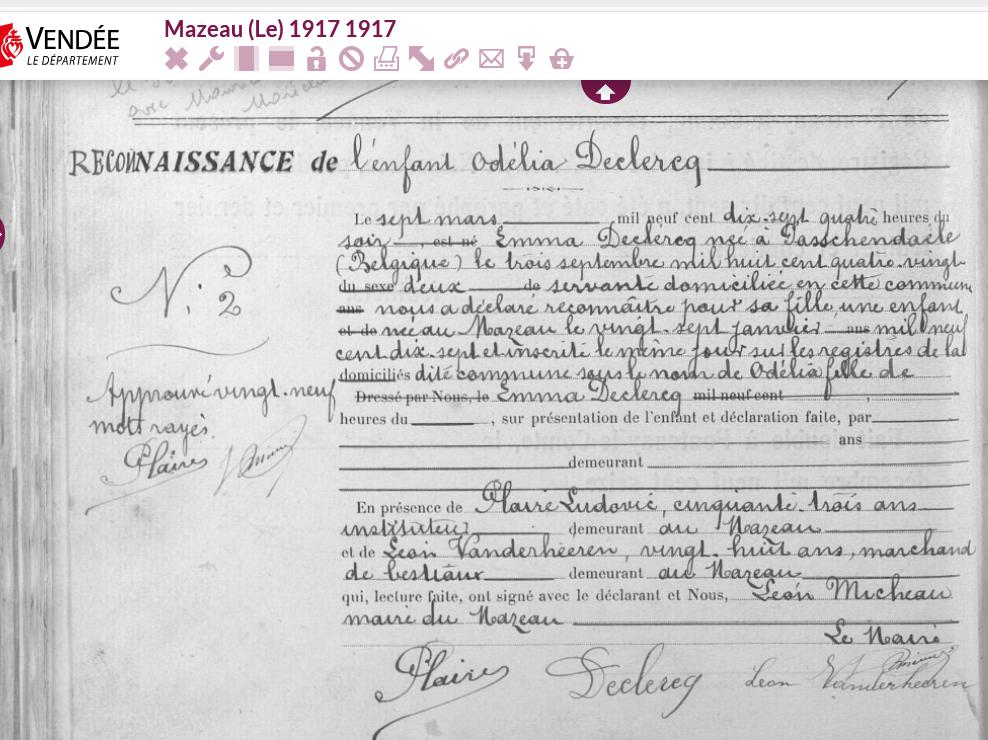 VENDÉE
LE DÉPARTEMENT
Mazeau (Le) 1917 1917
avec
RECONNAISSANCE de l'enfant Odélia Declercq
Le sept mars mil neuf cent dix-sept quatre heures du
soir, est né Emma Declercq née à Passchendaele
(Belgique) le trois septembre mil huit cent quatre-vingt
du sexe deux de servante domiciliée en cette commune
ans nous a déclaré reconnaître pour sa fille, une enfant
et de née au Mazeau le vingt-sept janvier ans mil neuf
cent dix-sept et inscrite le même jour sur les registres de la
domiciliés dite commune sous le nom de Odélia fille de
Dressé par Nous, le Emma Declercq mil neuf cent ,
heures du , sur présentation de l'enfant et déclaration faite, par
ans
demeurant
En présence de Plaire Ludovic, cinquante trois ans
instituteur demeurant au Mazeau
et de Léon Vanderheeren, vingt-huit ans, marchand
de bestiaux demeurant au Mazeau
qui, lecture faite, ont signé avec le déclarant et Nous, Léon Micheau
maire du Mazeau
Le Maire
Plaire Declercq Leon Vanderheeren
N° 2
Approuvé vingt-neuf
mots rayés
Plaire